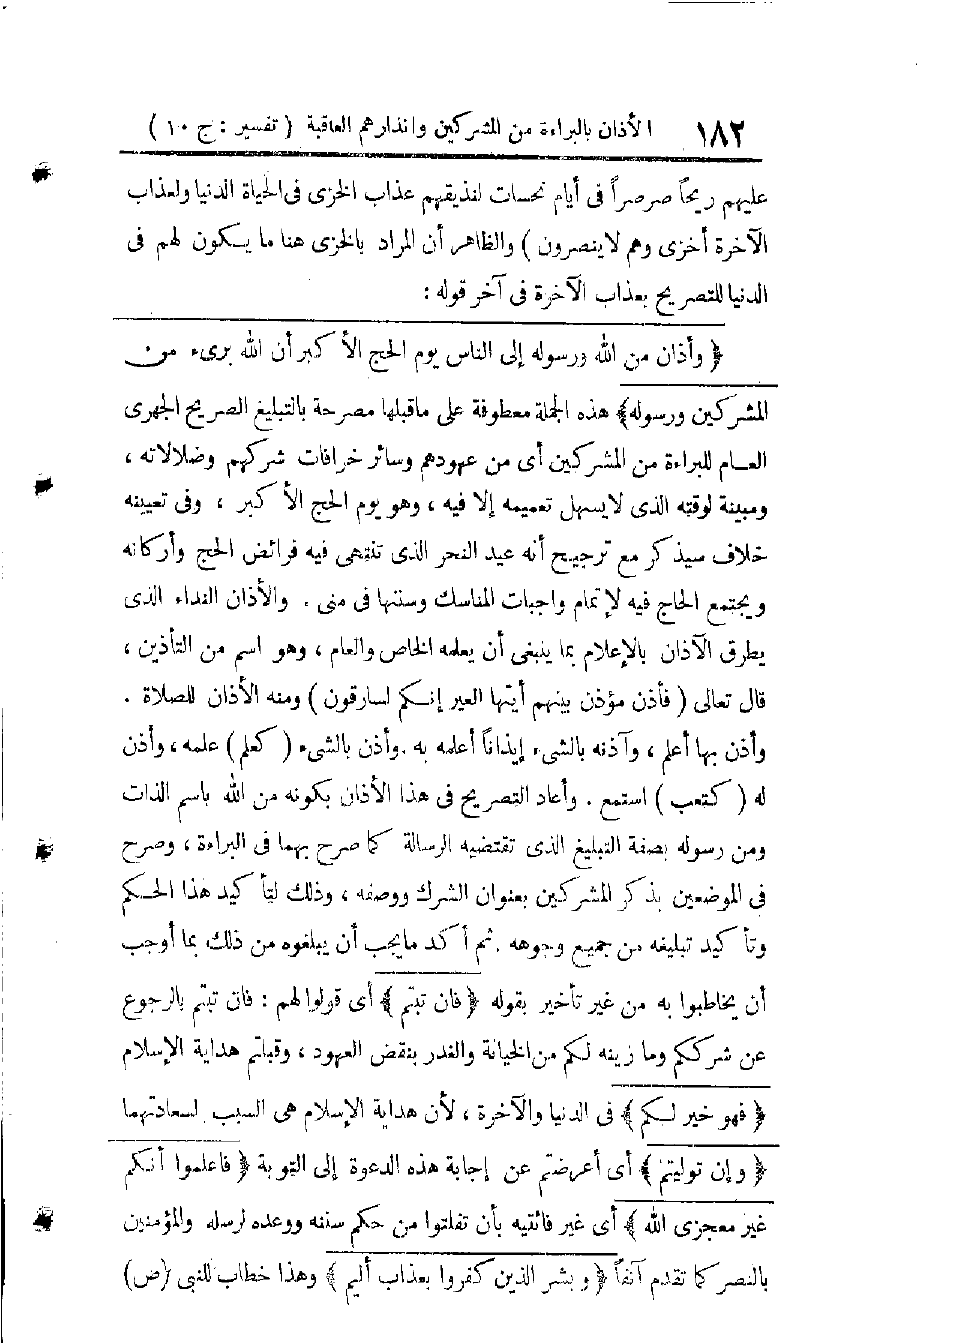 ١٨٢ الأذان بالبراءة من المشركين وانذارهم العاقبة ( تفسير : ج ١٠ )
عليهم ريحاً صرصراً فى أيام نحسات لنذيقهم عذاب الخزى فى الحياة الدنيا ولعذاب
الآخرة أخزى وهم لا ينصرون ) والظاهر أن المراد بالخزى هنا ما يكون لهم فى
الدنيا للتصريح بعذاب الآخرة فى آخر قوله :
﴿ وأذان من الله ورسوله إلى الناس يوم الحج الأكبر أن الله برىء من
المشركين ورسوله﴾ هذه الجملة معطوفة على ماقبلها مصرحة بالتبليغ الصريح الجهرى
العام للبراءة من المشركين أى من عهودهم وسائر خرافات شركهم وضلالاته ،
ومبينة لوقته الذى لا يسهل تعميمه إلا فيه ، وهو يوم الحج الأكبر ، وفى تعيينه
خلاف سيذكر مع ترجيح أنه عيد النحر الذى تنتهى فيه فرائض الحج وأركانه
ويجتمع الحاج فيه لإتمام واجبات المناسك وسننها فى منى . والأذان النداء الذى
يطرق الآذان بالإعلام بما ينبغى أن يعلمه الخاص والعام ، وهو اسم من التأذين ،
قال تعالى ( فأذن مؤذن بينهم أيتها العير إنكم لسارقون ) ومنه الأذان للصلاة .
وأذن بها أعلم ، وآذنه بالشىء إيذاناً أعلمه به .وأذن بالشىء ( كعلم ) علمه ، وأذن
له ( كتعب ) استمع . وأعاد التصريح فى هذا الأذان بكونه من الله باسم الذات
ومن رسوله بصفة التبليغ الذى تقتضيه الرسالة كما صرح بهما فى البراءة ، وصرح
فى الموضعين بذكر المشركين بعنوان الشرك ووصفه ، وذلك لتأكيد هذا الحكم
وتأكيد تبليغه من جميع وجوهه .ثم أكد مايجب أن يبلغوه من ذلك بما أوجب
أن يخاطبوا به من غير تأخير بقوله ﴿ فان تبتم ﴾ أى قولوا لهم : فان تبتم بالرجوع
عن شرككم وما زينه لكم من الخيانة والغدر بنقض العهود ، وقبلتم هداية الإسلام
﴿ فهو خير لكم ﴾ فى الدنيا والآخرة ، لأن هداية الإسلام هى السبب لسعادتهما
﴿ وإن توليتم ﴾ أى أعرضتم عن إجابة هذه الدعوة إلى التوبة ﴿ فاعلموا أنكم
غير معجزى الله ﴾ أى غير فائتيه بأن تفلتوا من حكم سننه ووعده لرسله والمؤمنين
بالنصر كما تقدم آنفاً ﴿ وبشر الذين كفروا بعذاب أليم ﴾ وهذا خطاب للنبى (ص)